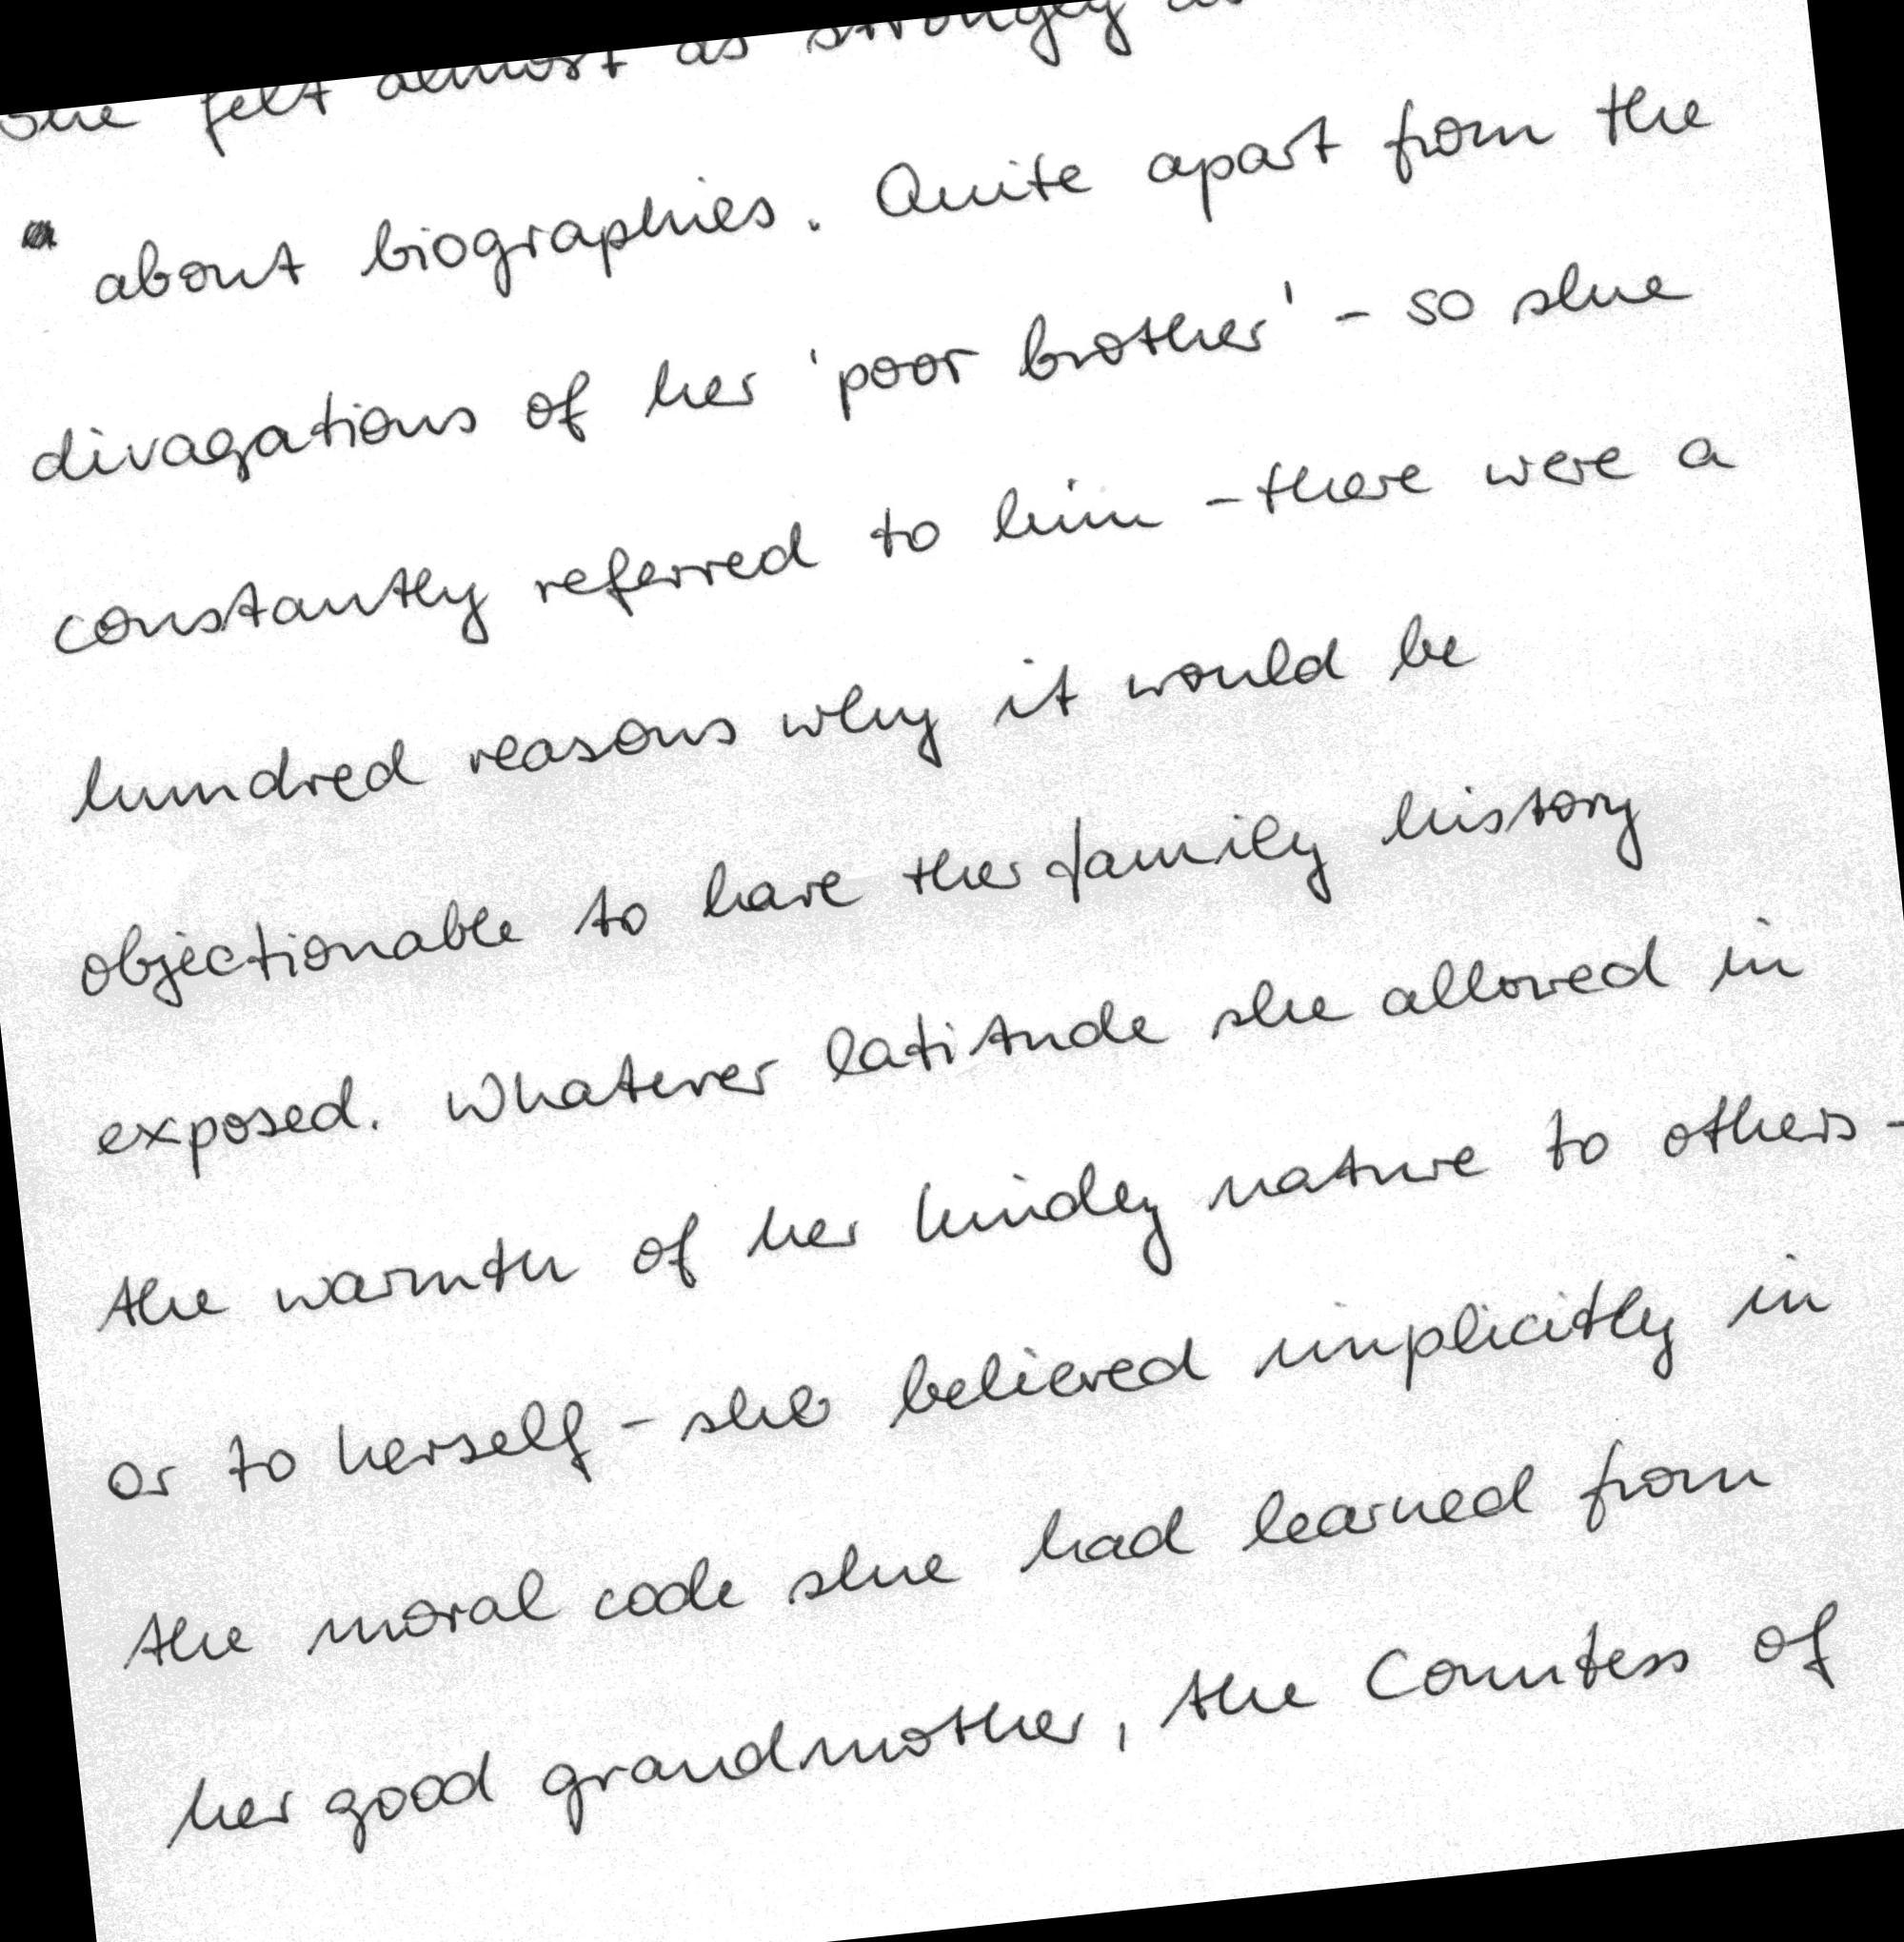 She felt almost as strongly
about biographies. Quite apart from the
divagations of her 'poor brother' - so she
constantly referred to him - there were a
hundred reasons why it would be
objectionable to have ther family history
exposed. Whatever latitude she allowed in
the warmth of her kindly nature to others -
or to herself - she believed implicitly in
the moral code she had learned from
her good grandmother, the Countess of